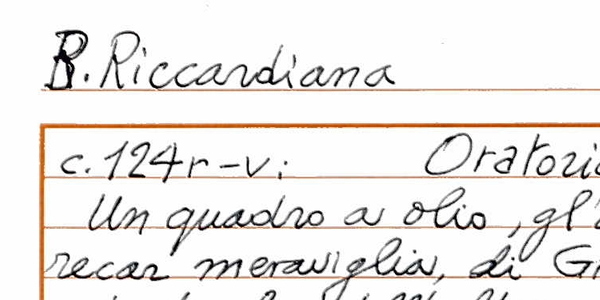 B. Riccardiana
c. 124r-v:   Oratorio
Un quadro a olio, gl'
recar meraviglia, di